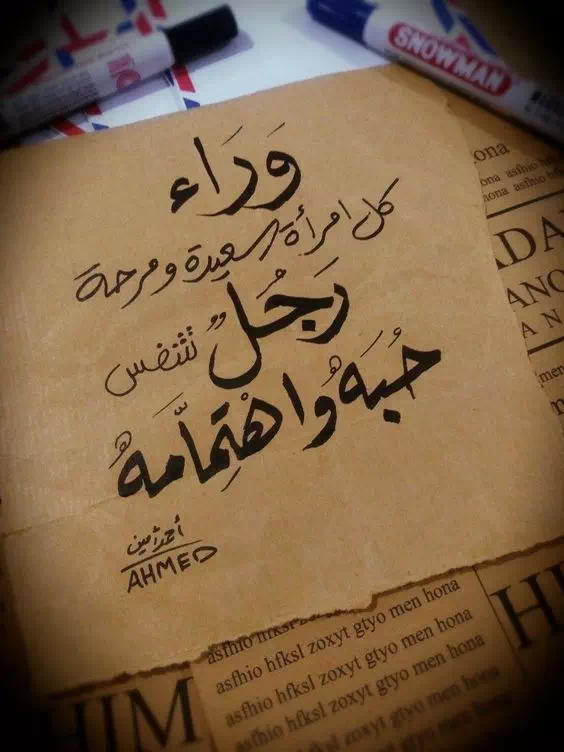 SNOWMAN
وَرَاء
كل امرأة سعيدة ومرحة
رَجُلٌ تتنفس
حُبَهُ واهْتِمَامَهُ
أحمد أمين
AHMED
ona
asfhio h
ona
hona asfhio h
ADA
ANO
AN
men
hona
asfhio hfksl zoxyt gtyo men hona
asfhio hfksl zoxyt gtyo men hona
asfhio hfksl zoxyt gtyo men hona
asfhio hfksl zoxyt gtyo men hona
HIM
HI